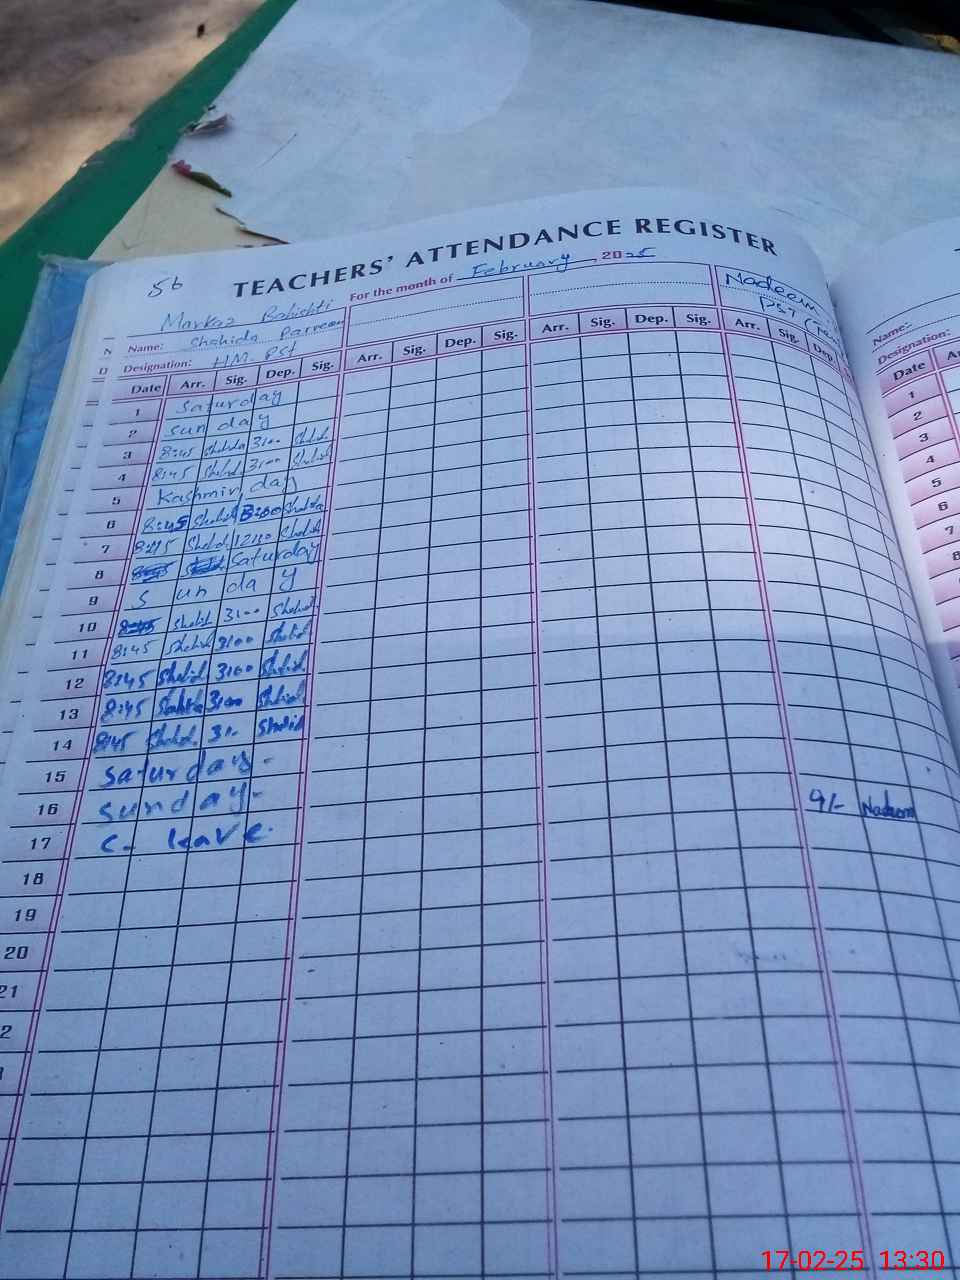 56
TEACHERS' ATTENDANCE REGISTER
For the month of February 2025
Markaz Bahishti
Name: Shahida Parveen
Designation: HM. PST
Nadeem
PST
Date Arr. Sig. Dep. Sig. Arr. Sig. Dep. Sig. Arr. Sig. Dep. Sig. Arr. Sig. Dep.
1 Saturday
2 Sun day
3 8:45 Shahida 3:00 Shahid
4 8:45 Shahid 3:00 Shahid
5 Kashmir day
6 8:45 Shahid 3:00 Shahida
7 8:45 Shahid 12:00 Shahid
8 Saturday
9 S un da y
10 8:45 Shahid 3:00 Shahid
11 8:45 Shahid 3:00 Shahid
12 8:45 Shahid 3:00 Shahid
13 8:45 Shahid 3:00 Shahid
14 8:45 Shahid 3:- Shahid
15 Saturday.
16 Sunday.
17 C. leave. 9/- Nadeem
18
19
20
21
2
Name:
Designation:
Date
1
2
3
4
5
6
7
8
9
10
11
12
17-02-25 13:30